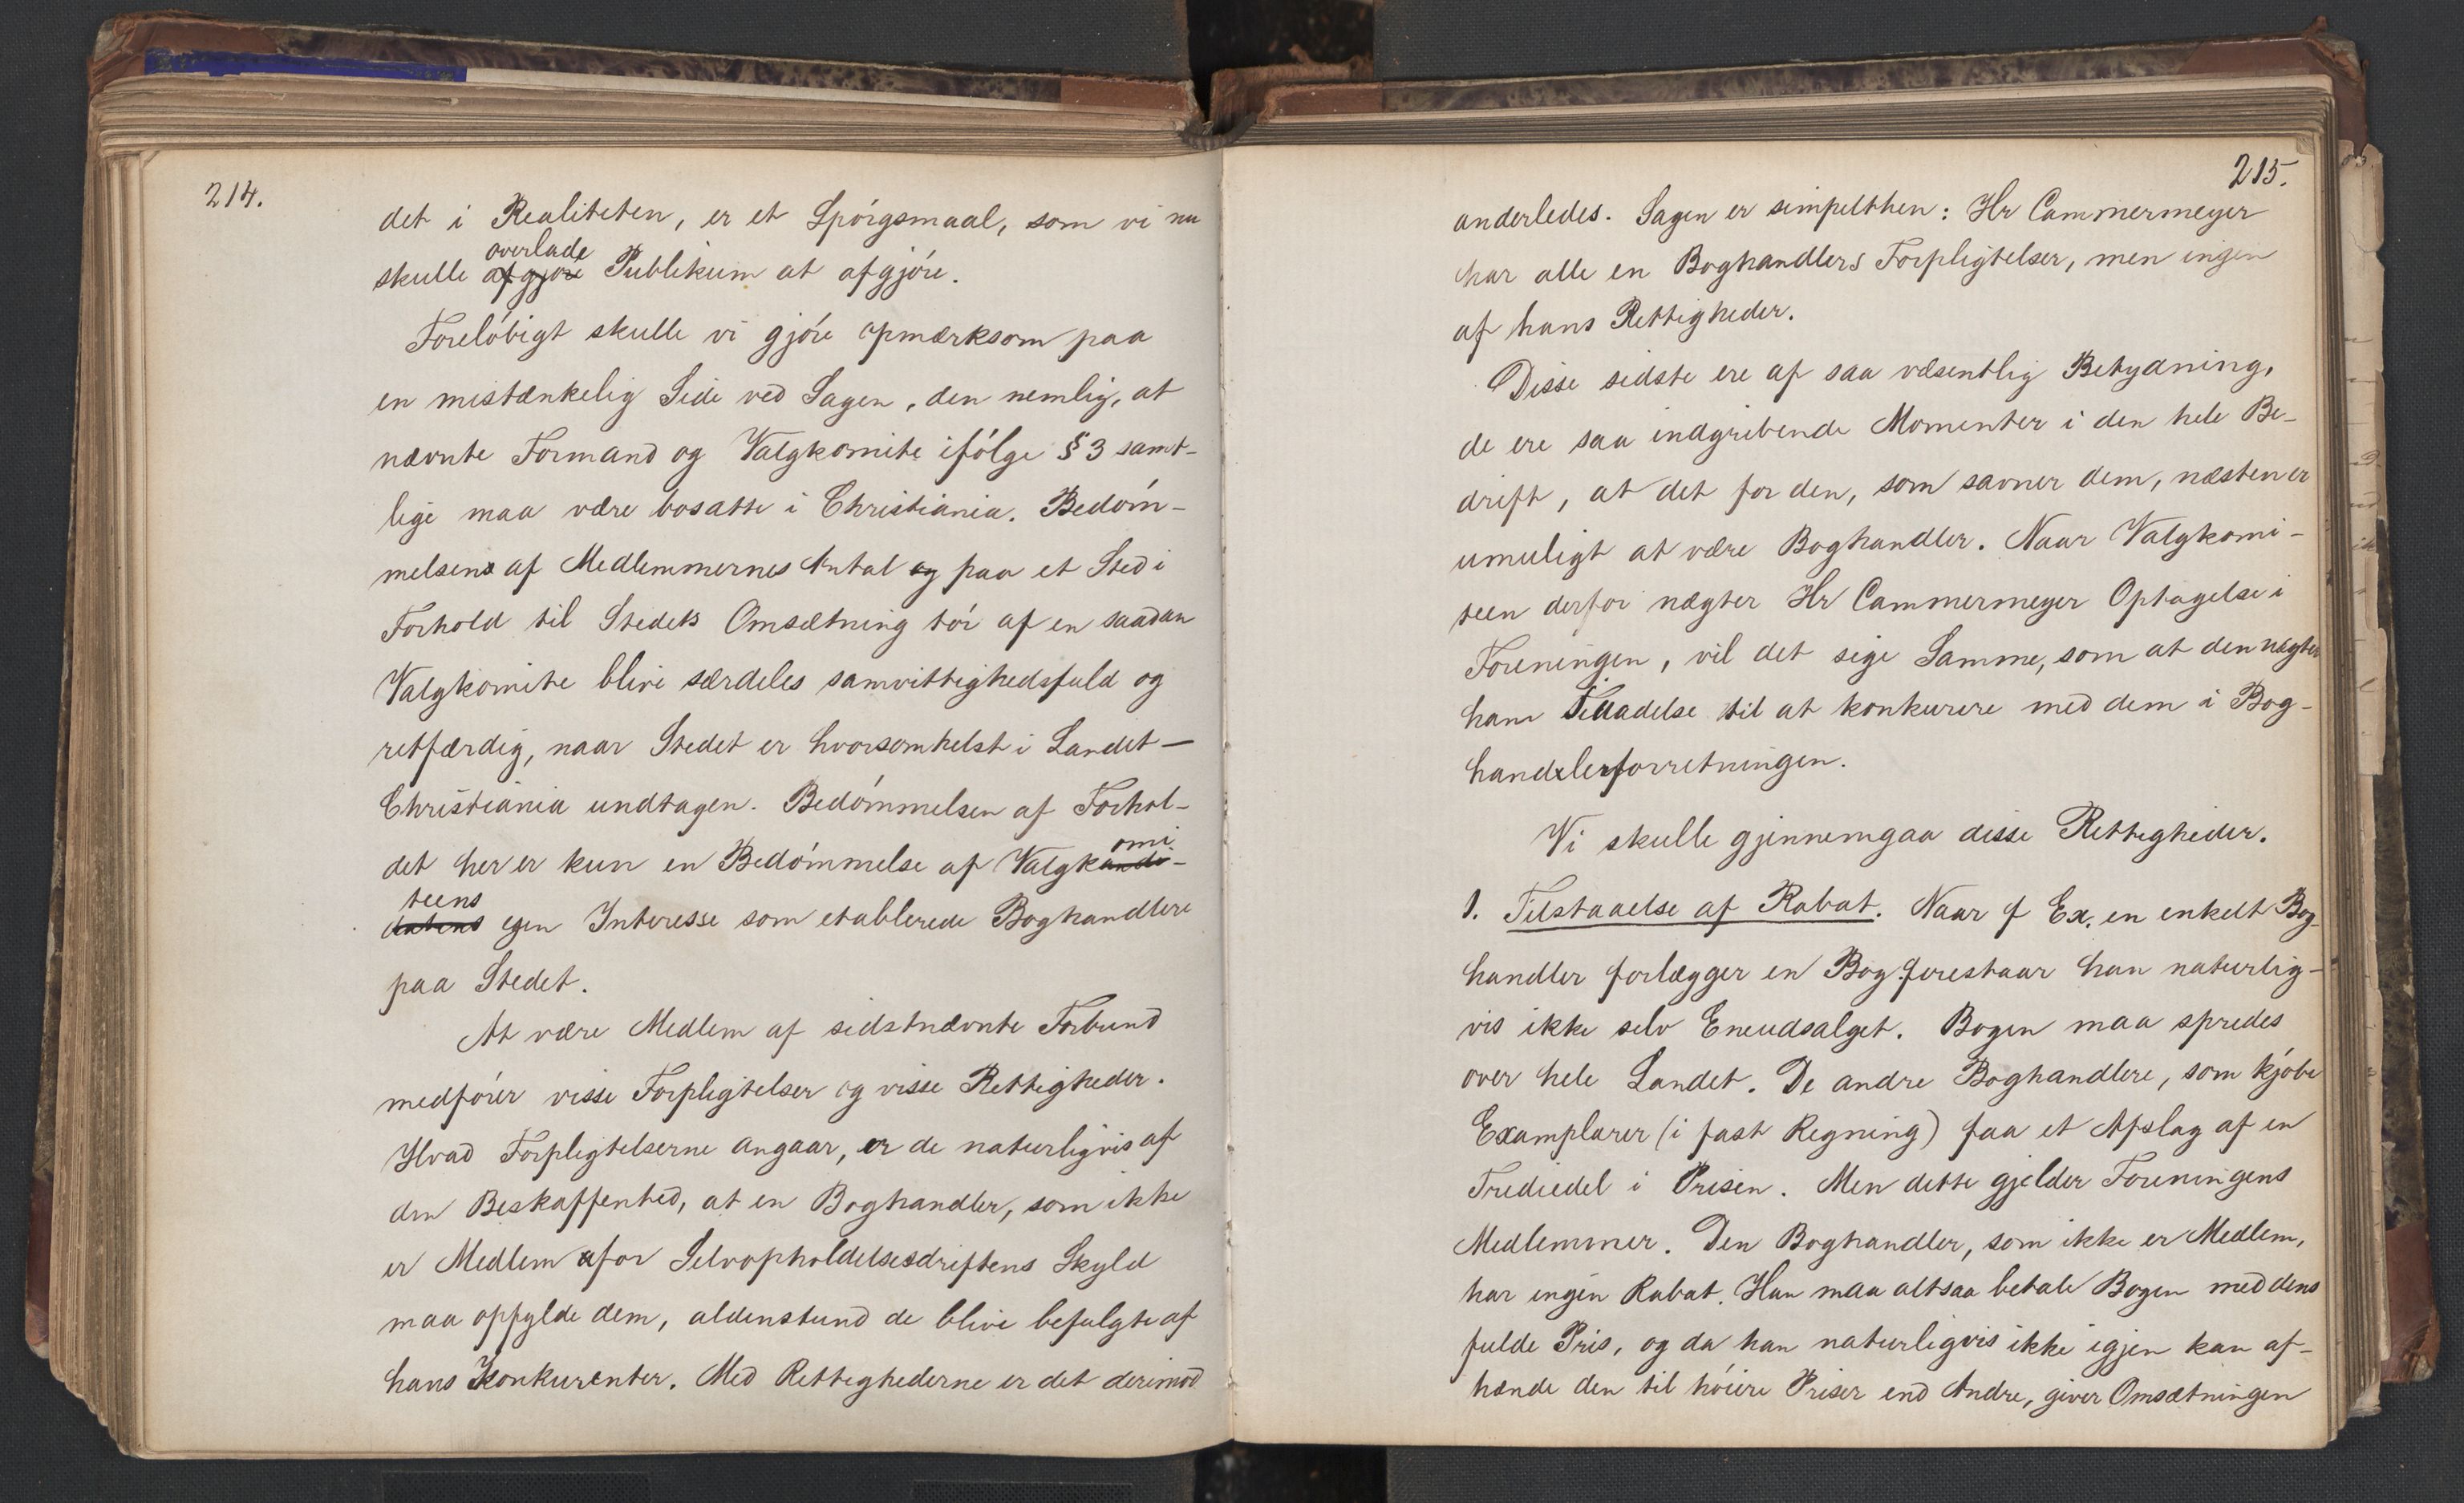 214.
det i Realiteten, er et Spörgsmaal, som vi nu
overlade
skulle afgjöre Publikum at afgjöre.
Forelöbigt skulle vi gjöre opmærksom paa
en mistænkelig Side ved Sagen, den nemlig, at
nævnte Formand og Valgkomite ifölge § 3 samt-
lige maa være bosatte i Christiania. Bedöm-
melsen af Medlemmernes Antal og paa et Sted i
Forhold til Stedets Omsætning tör af en saadan
Valgkomite blive særdeles samvittighedsfuld og
retfærdig, naar Stedet er hvorsomhelst i Landet —
Christiania undtagen. Bedömmelsen af Forhol-
omi
det her er kun en Bedömmelse af Valgkandi-
teens
datens egen Interesse som etablerede Boghandlere
paa Stedet.
At være Medlem af sidstnævnte Forbund
medförer visse Forpligtelser og visse Rettigheder.
Hvad Forpligtelserne angaar, er de naturligvis af
den Beskaffenhed, at en Boghandler, som ikke
er Medlem for Selvopholdelsesdriftens Skyld
maa opfylde dem, aldenstund de blive befulgte af
hans Konkurenter. Med Rettighederne er det derimod
215.
anderledes. Sagen er simpelthen: Hr Cammermeyer
har alle en Boghandlers Forpligtelser, men ingen
af hans Rettigheder.
Disse sidste ere af saa væsentlig Betydning,
de ere saa indgribende Momenter i den hele Be-
drift, at det for den, som savner dem, næsten er
umuligt at være Boghandler. Naar Valgkomi-
teen derfor nægter Hr Cammermeyer Optagelse i
Foreningen, vil det sige Samme, som at den nægter
ham Tilladelse til at konkurere med dem i Bog-
handlerforretningen.
Vi skulle gjennemgaa disse Rettigheder.
1. Tilstaaelse af Rabat. Naar f Ex. en enkelt Bog-
handler forlægger en Bog forestaar han naturlig-
vis ikke selv Eneudsalget. Bogen maa spredes
over hele Landet. De andre Boghandlere, som kjöbe
Examplarer (i fast Regning) faa et Afslag af en
Trediedel i Prisen. Men dette gjelder Foreningens
Medlemmer. Den Boghandler, som ikke er Medlem,
har ingen Rabat. Han maa altsaa betale Bogen med dens
fulde Pris, og da han naturligvis ikke igjen kan af-
hænde den til höiere Priser end Andre, giver Omsætningen